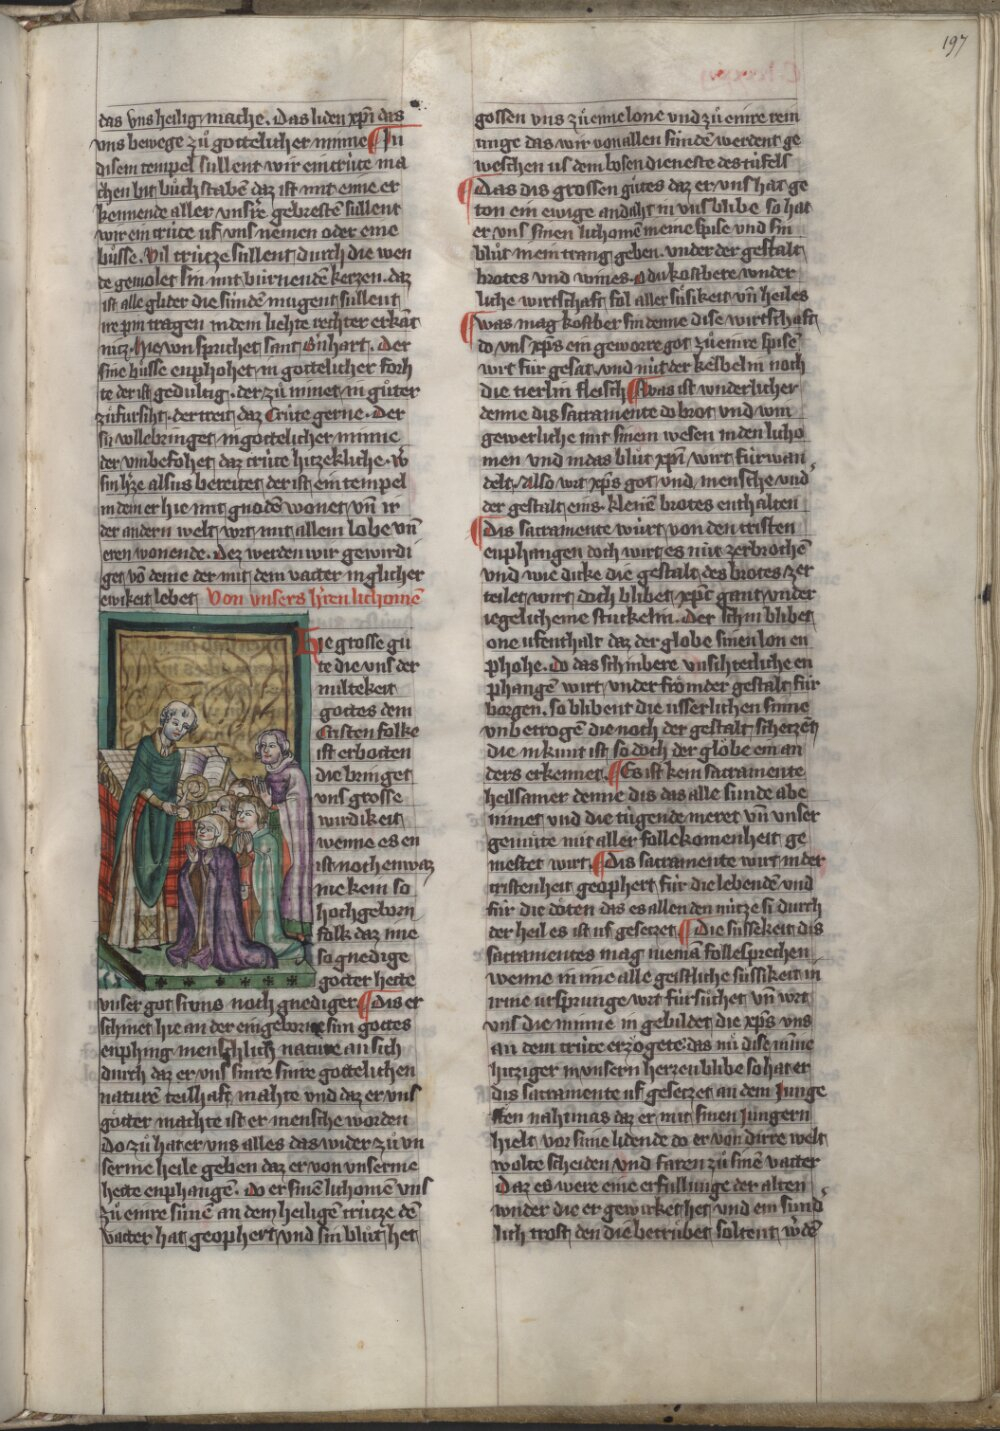 197
das vns heilig mache. das liden xp̄i das
vns bewege zů gottelicher minne ¶ In
disem tempel süllent wir ein crúce ma
chen bit bůchstabē daz ist mit eime er
kennende aller vnsr̄e gebrestē süllent
wir ein crúce uf vns nemen oder eine
bůsse. Vil crútze süllent durch die wen
de gemolet sin mit búrnendē kerzen. daz
ist alle glider die súndē mugent süllent
ire pin tragen in dem liehte rechter erkāt
núz. hie von sprichet sant b'nhart. Der
sine bůsse enphohet in gottelicher forh
te der ist gedultig. der zů nimet in gůter
zůfúrsiht. der treit daz Crúte gerne. der
sú vollebringet in gottelicher minne
der vmbefohet daz crúce hitzekliche. w̄
sin h'ze alsus bereitet der ist ein tempel
in dem er hie mit gnodē wonet vn̄ in
der andern welt wrt mit allem lobe vn̄
eren wonende. Dez werden wir gewirdi
get vō deme der mit dem vatter inglicher
ewikeit lebet Von vnsers h'ren lichomē
Die grosse gü
te die vns der
miltekeit
gottes dem
Cristen folke
ist erbotten
die bringet
vns grosse
wirdikeit
wenne es en
ist noch enwaz
nie kein so
hochgeborn
folk daz nie
so gnedige
götter hette
vnser got si vns noch gnediger ¶ Dis er
schinet hie an der eingeborne sun gottes
enphing menschlich nature an sich
durch daz er vns sinre sinre gottelichen
naturē teilhaft mahte vnd daz er vns
götter machte ist er mensche worden
Do zů hat er vns alles das wider zů vn
serme heile geben daz er von vnserme
hette enphangē. do er sinē lichomē vns
zů einre sůnē an dem heiligē crútze dē
vatter hat geophert vnd sin blůt het
gossen vns zů eime lone vnd zů einre rein
unge das wir von allen súndē werdent ge
weschen us dem bösen dieneste des túfels
¶ Das dis grossen gůtes daz er vns hat ge
ton ein ewige andaht in vns blibe so hat
er vns sinen lichomē in eime spise vnd sin
blůt in ein trang geben. vnder der gestalt
brotes vnd wines. o du kostbere wnder
liche wirtschaft fol aller süsikeit vn̄ heiles
¶ was mag kostber sin denne dise wirtschaft
do vns xp̄s ein geworre got zů einre spise
wirt fúr gesat vnd nút der kelbelin noch
die tierlin fleisch ¶ Was ist wnderlicher
denne dis sacramente do brot vnd win
gewerliche mit sinem wesen in den licho
men vnd in das blůt xp̄i wirt fúrwan
delt. Also wit xp̄s got vnd mensche vnd
der gestalt eins kleinē brotes enthalten
¶ Dis sacramente wúrt von den cristen
enphangen doch wirt es nút zerbrochē
vnd wie dicke die gestalt des brotes zer
teilet wirt doch blibet xp̄c gantz vnder
iegelicheme stúckelin. Der schin blibet
one ufenthalt daz der globe sinen lon en
phohe. do das schinbere vnsihteliche en
phangē wirt vnder frömder gestalt fúr
borgen. so blibent die usserlichen sinne
vnbetrogen die noch der gestalt schetzent
die in kunt ist so doch der glöbe ein an
ders erkennet. ¶ Es ist kein sacramente
heilsamer denne dis das alle súnde abe
nimet vnd die túgende meret vn̄ vnser
gemüte mit aller follekomenheit ge
mestet wirt. ¶ Dis sacramente wirt in der
cristenheit geophert fúr die lebendē vnd
fúr die döten das es allen den nútze si durch
der heil es ist uf gesetzet ¶ Die süssekeit dis
sacramentes mag niemā follesprechen
wenne in ime alle geistliche süssikeit in
irme ursprunge wrt fúrsůchet vn̄ wrt
vns die minne in gebildet die xp̄s vns
an dem crúce erzögete das nů dise mīne
hitziger in vnsern herzen blibe so hat er
dis sacramente uf gesetzet an dem Junge
sten nahtmas daz er mit sinen Jungern
hielt vor sime lidende do er von dirre welt
wolte scheiden vnd faren zů sinē vatter
Daz es were eine erfüllunge der alten
wnder die er gewirket het vnd ein sund'
lich trost den die betrübet soltent w'dē